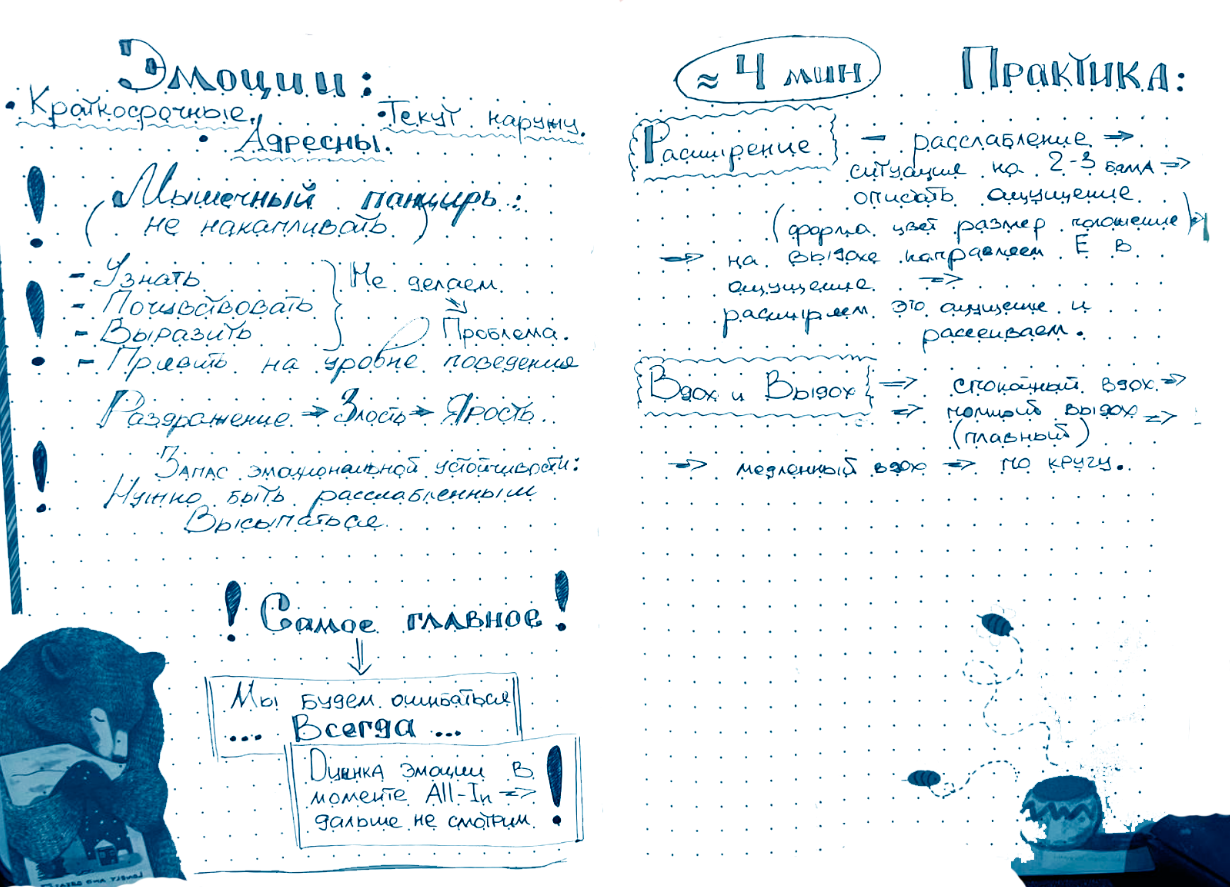 Эмоции:
• Краткосрочные.
• Текут наружу.
• Адресны.
! Мышечный панцирь:
(не накапливать)
- Узнать
- Почувствовать
- Выразить
Не делаем
Проблема.
- Прявить на уровне поведения
Раздражение → Злость → Ярость
Запас эмоциональной устойчивости:
Нужно быть расслабленным
Высыпаться.
! Самое главное!
Мы будем ошибаться
... Всегда ...
Оценка эмоции в
моменте All-In ⇒
дальше не смотрим.
≈ 4 мин
Практика:
Расширение
- расслабление ⇒
ситуация на 2-3 бала ⇒
описать ощущение
(форма цвет размер положение) ⇒
⇒ на выдохе направляем E в
ощущение ⇒
расширяем это ощущение и
рассеиваем.
Вдох и Выдох
⇒ спокойный вдох ⇒
⇒ полный выдох ⇒
(плавный)
⇒ медленный вдох ⇒ по кругу.